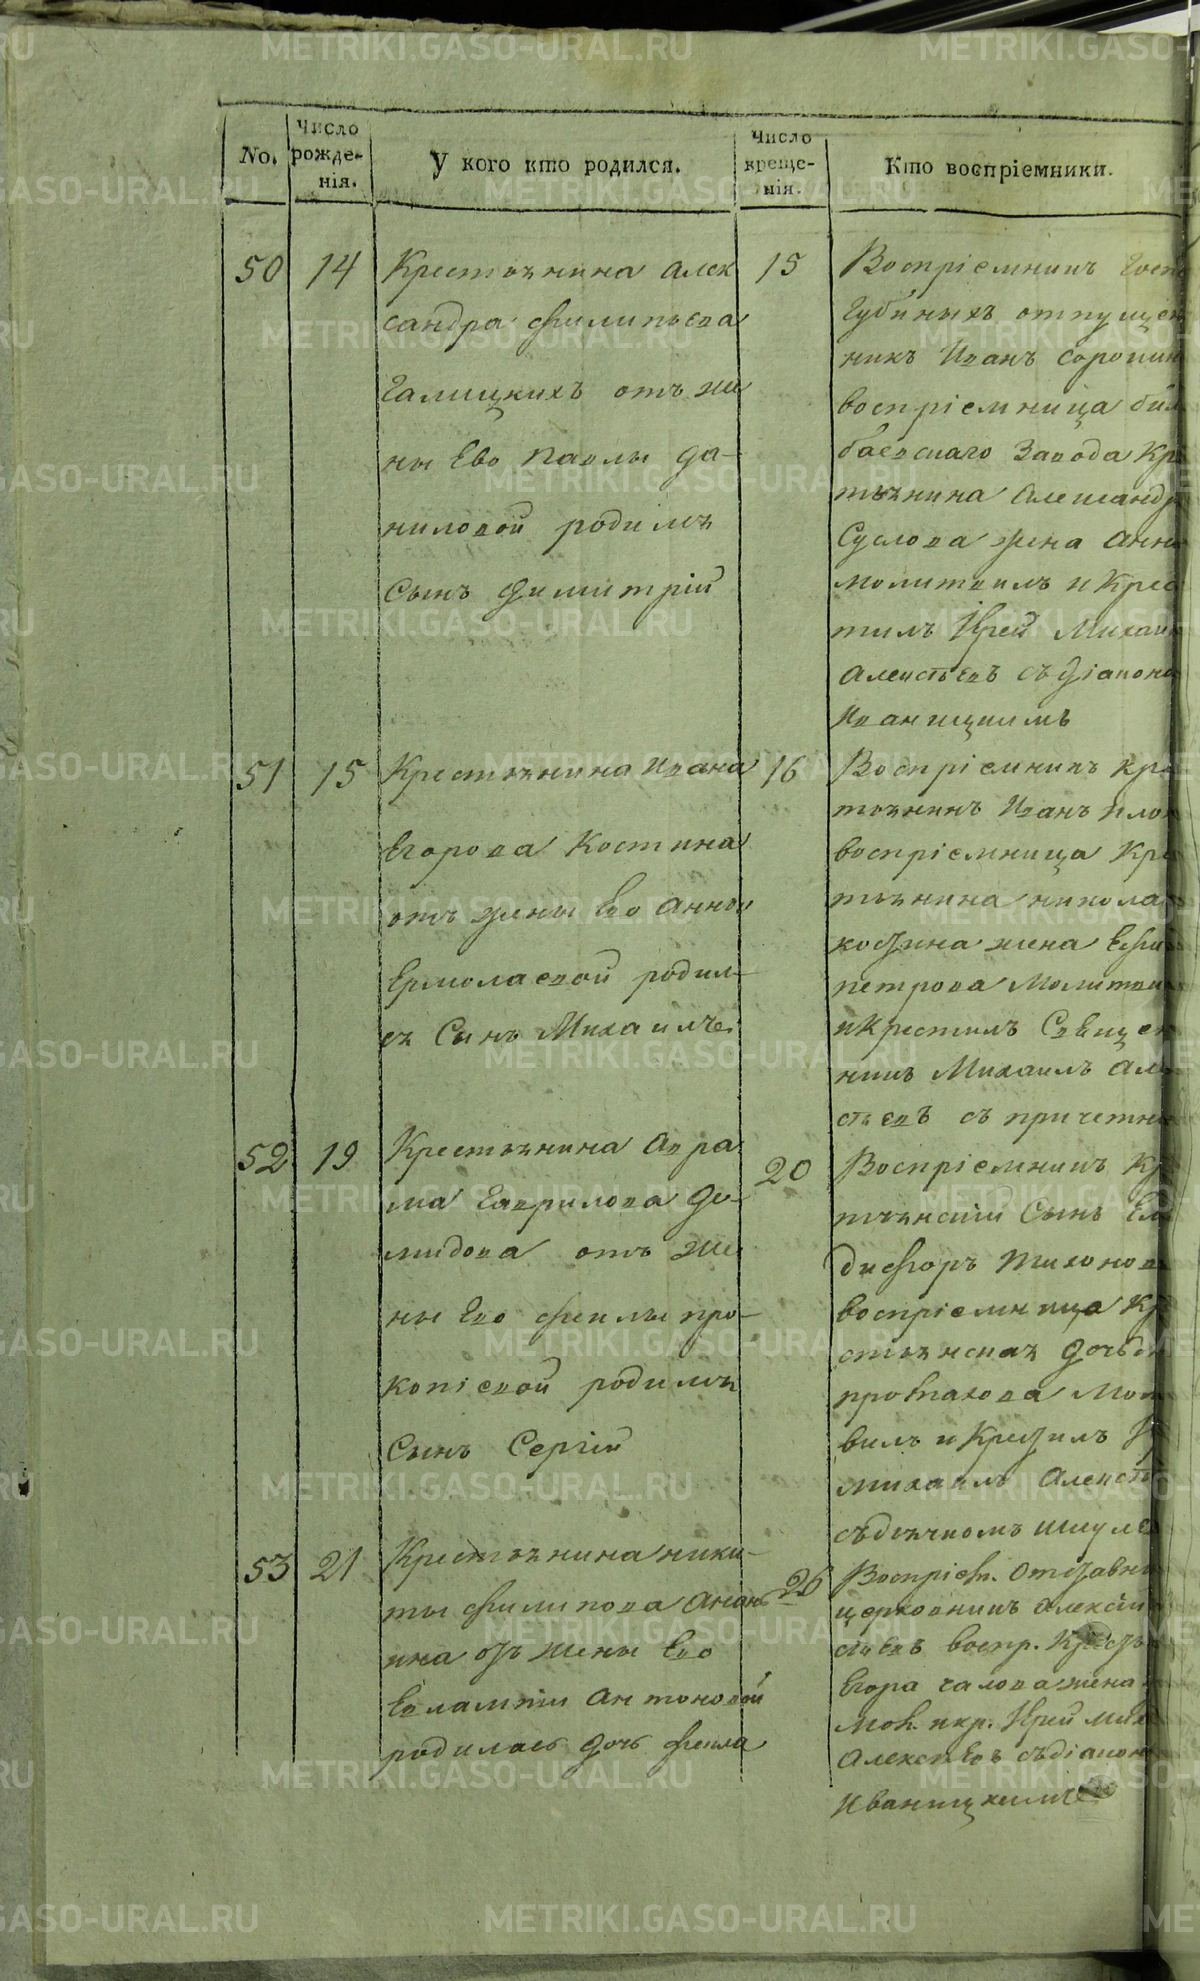 No.
Число
рожде-
нія.
У кого кто родился.
Число
креще-
нія.
Кто воспріемники.
50
14
Крестьянина Алек
сандра Филипьева
Галицкихъ отъ же
ны Ево Павлы Да-
ниловой родилъ
Сынъ Димитрій
15
Воспріемникъ
Губиныхъ отпущен
никъ Иванъ Сорокин
воспріемница бил
баевскаго Завода Кр
тьянина Александр
Суслова жена Анн
молитвилъ и Крес
тилъ Іерей Михаил
Алексѣевъ съ діаконо
Иваницкимъ
51
15
Крестьянина Ивана
Егорова Костина
отъ жены Ево Анной
Ермолаевой родил-
ся Сынъ Михаилъ
16
Воспріемникъ кре
тьянинъ Иванъ
воспріемница Кре
тьянина никола
жена
петрова Молитви
и Крестилъ Священ
никъ Михаилъ Але
сѣевъ съ причетни
52
19
Крестьянина Авра
ма Гаврилова Де-
мидова отъ же
ны Ево Феклы про-
копіевой родилъ
Сынъ Сергій
20
Воспріемникъ Кр
тьянскій Сынъ Ел
дифоръ Тихонов
воспріемница Кр
стьянская дочь
Мол
вилъ и Крестилъ
михаилъ Алексѣ
съ дьячкомъ
53
21
Крестьянина ники-
ты Филипова Анань
ина отъ жены Ево
Евлампіи Антоновой
родилась дочь Фекла
26
Воспріем. Отставн
церковникъ Алексій
воспр. Крест
Егора жена
мол. и кр. Іерей миха
Алексѣевъ съ діакон
Иваницкимъ